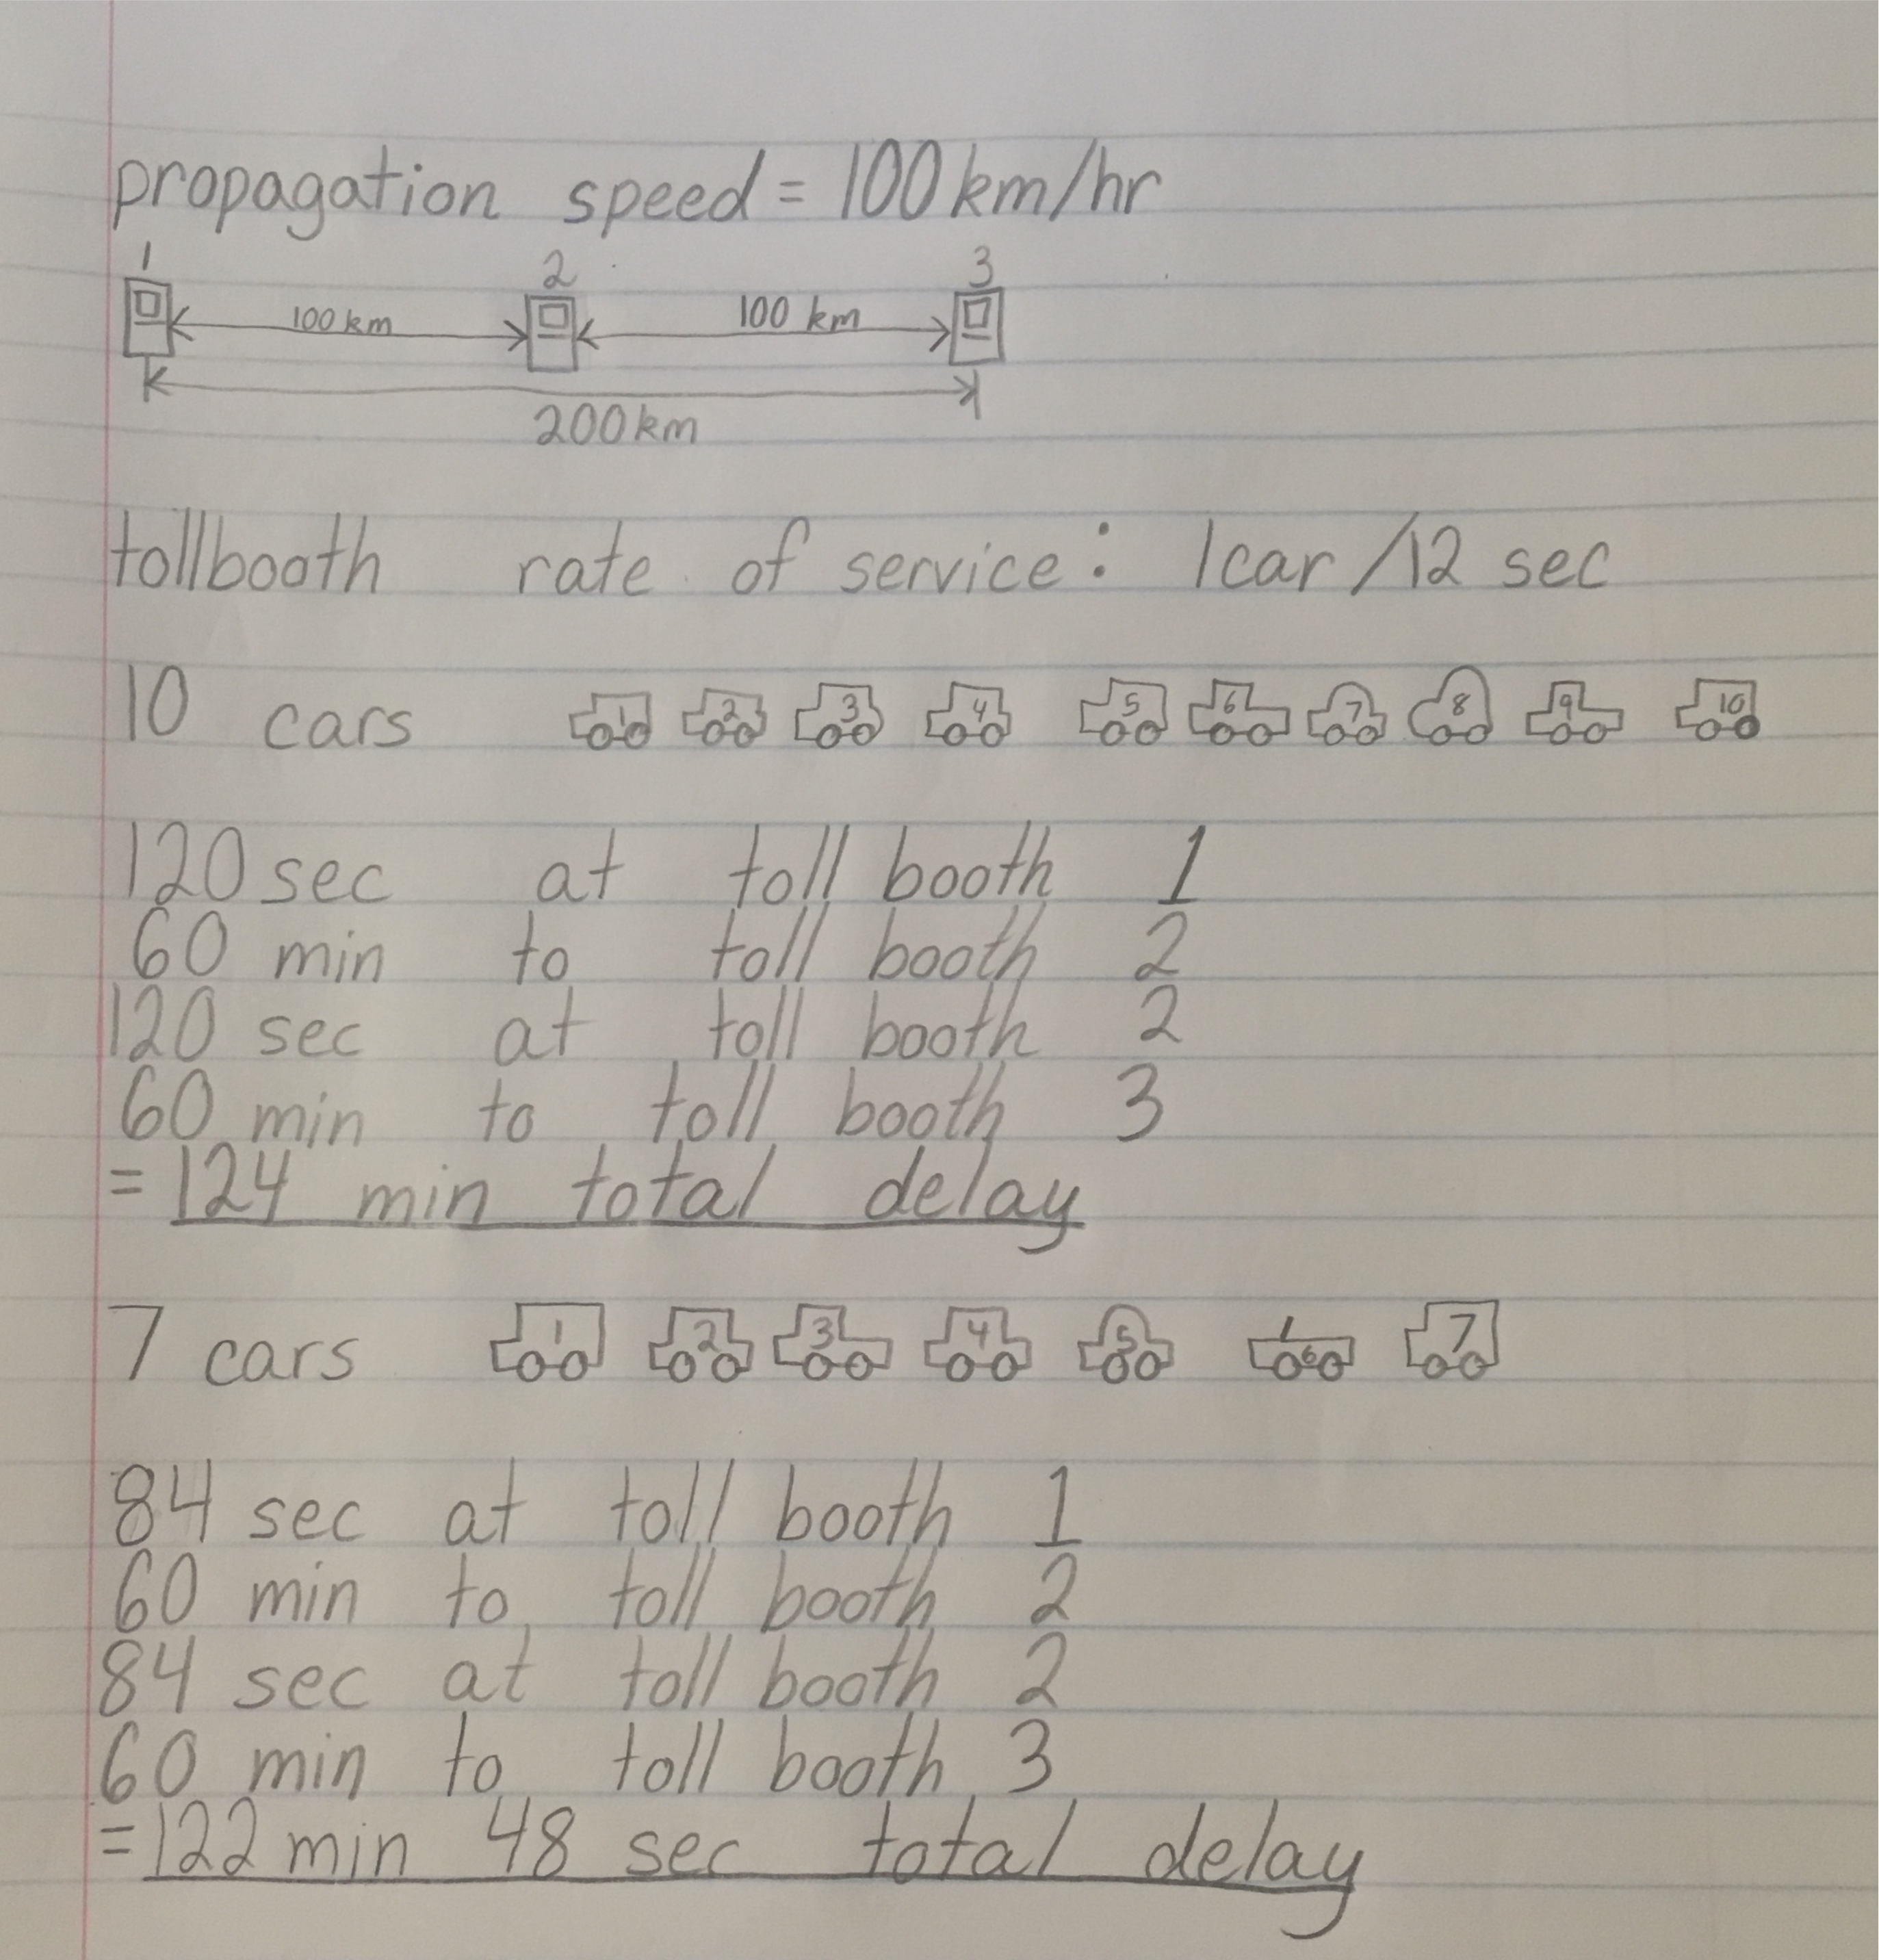 propagation speed = 100 km/hr
1 2 3
100 km 100 km
200 km
tollbooth rate of service: 1 car / 12 sec
10 cars 1 2 3 4 5 6 7 8 9 10
120 sec at toll booth 1
60 min to toll booth 2
120 sec at toll booth 2
60 min to toll booth 3
= 124 min total delay
7 cars 1 2 3 4 5 6 7
84 sec at toll booth 1
60 min to toll booth 2
84 sec at toll booth 2
60 min to toll booth 3
= 122 min 48 sec total delay